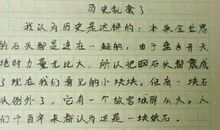 历史乱套了
我认为历史是这样的：未来全世界
的石头都是连在一起的，由于盘古开天
地时力量太比大，所以把网石头都震成
了现在我们看见的小块块，但有一块石
头例外了，它有一个故宫的那么大。人
们千百年来都认为这是一块铁石。